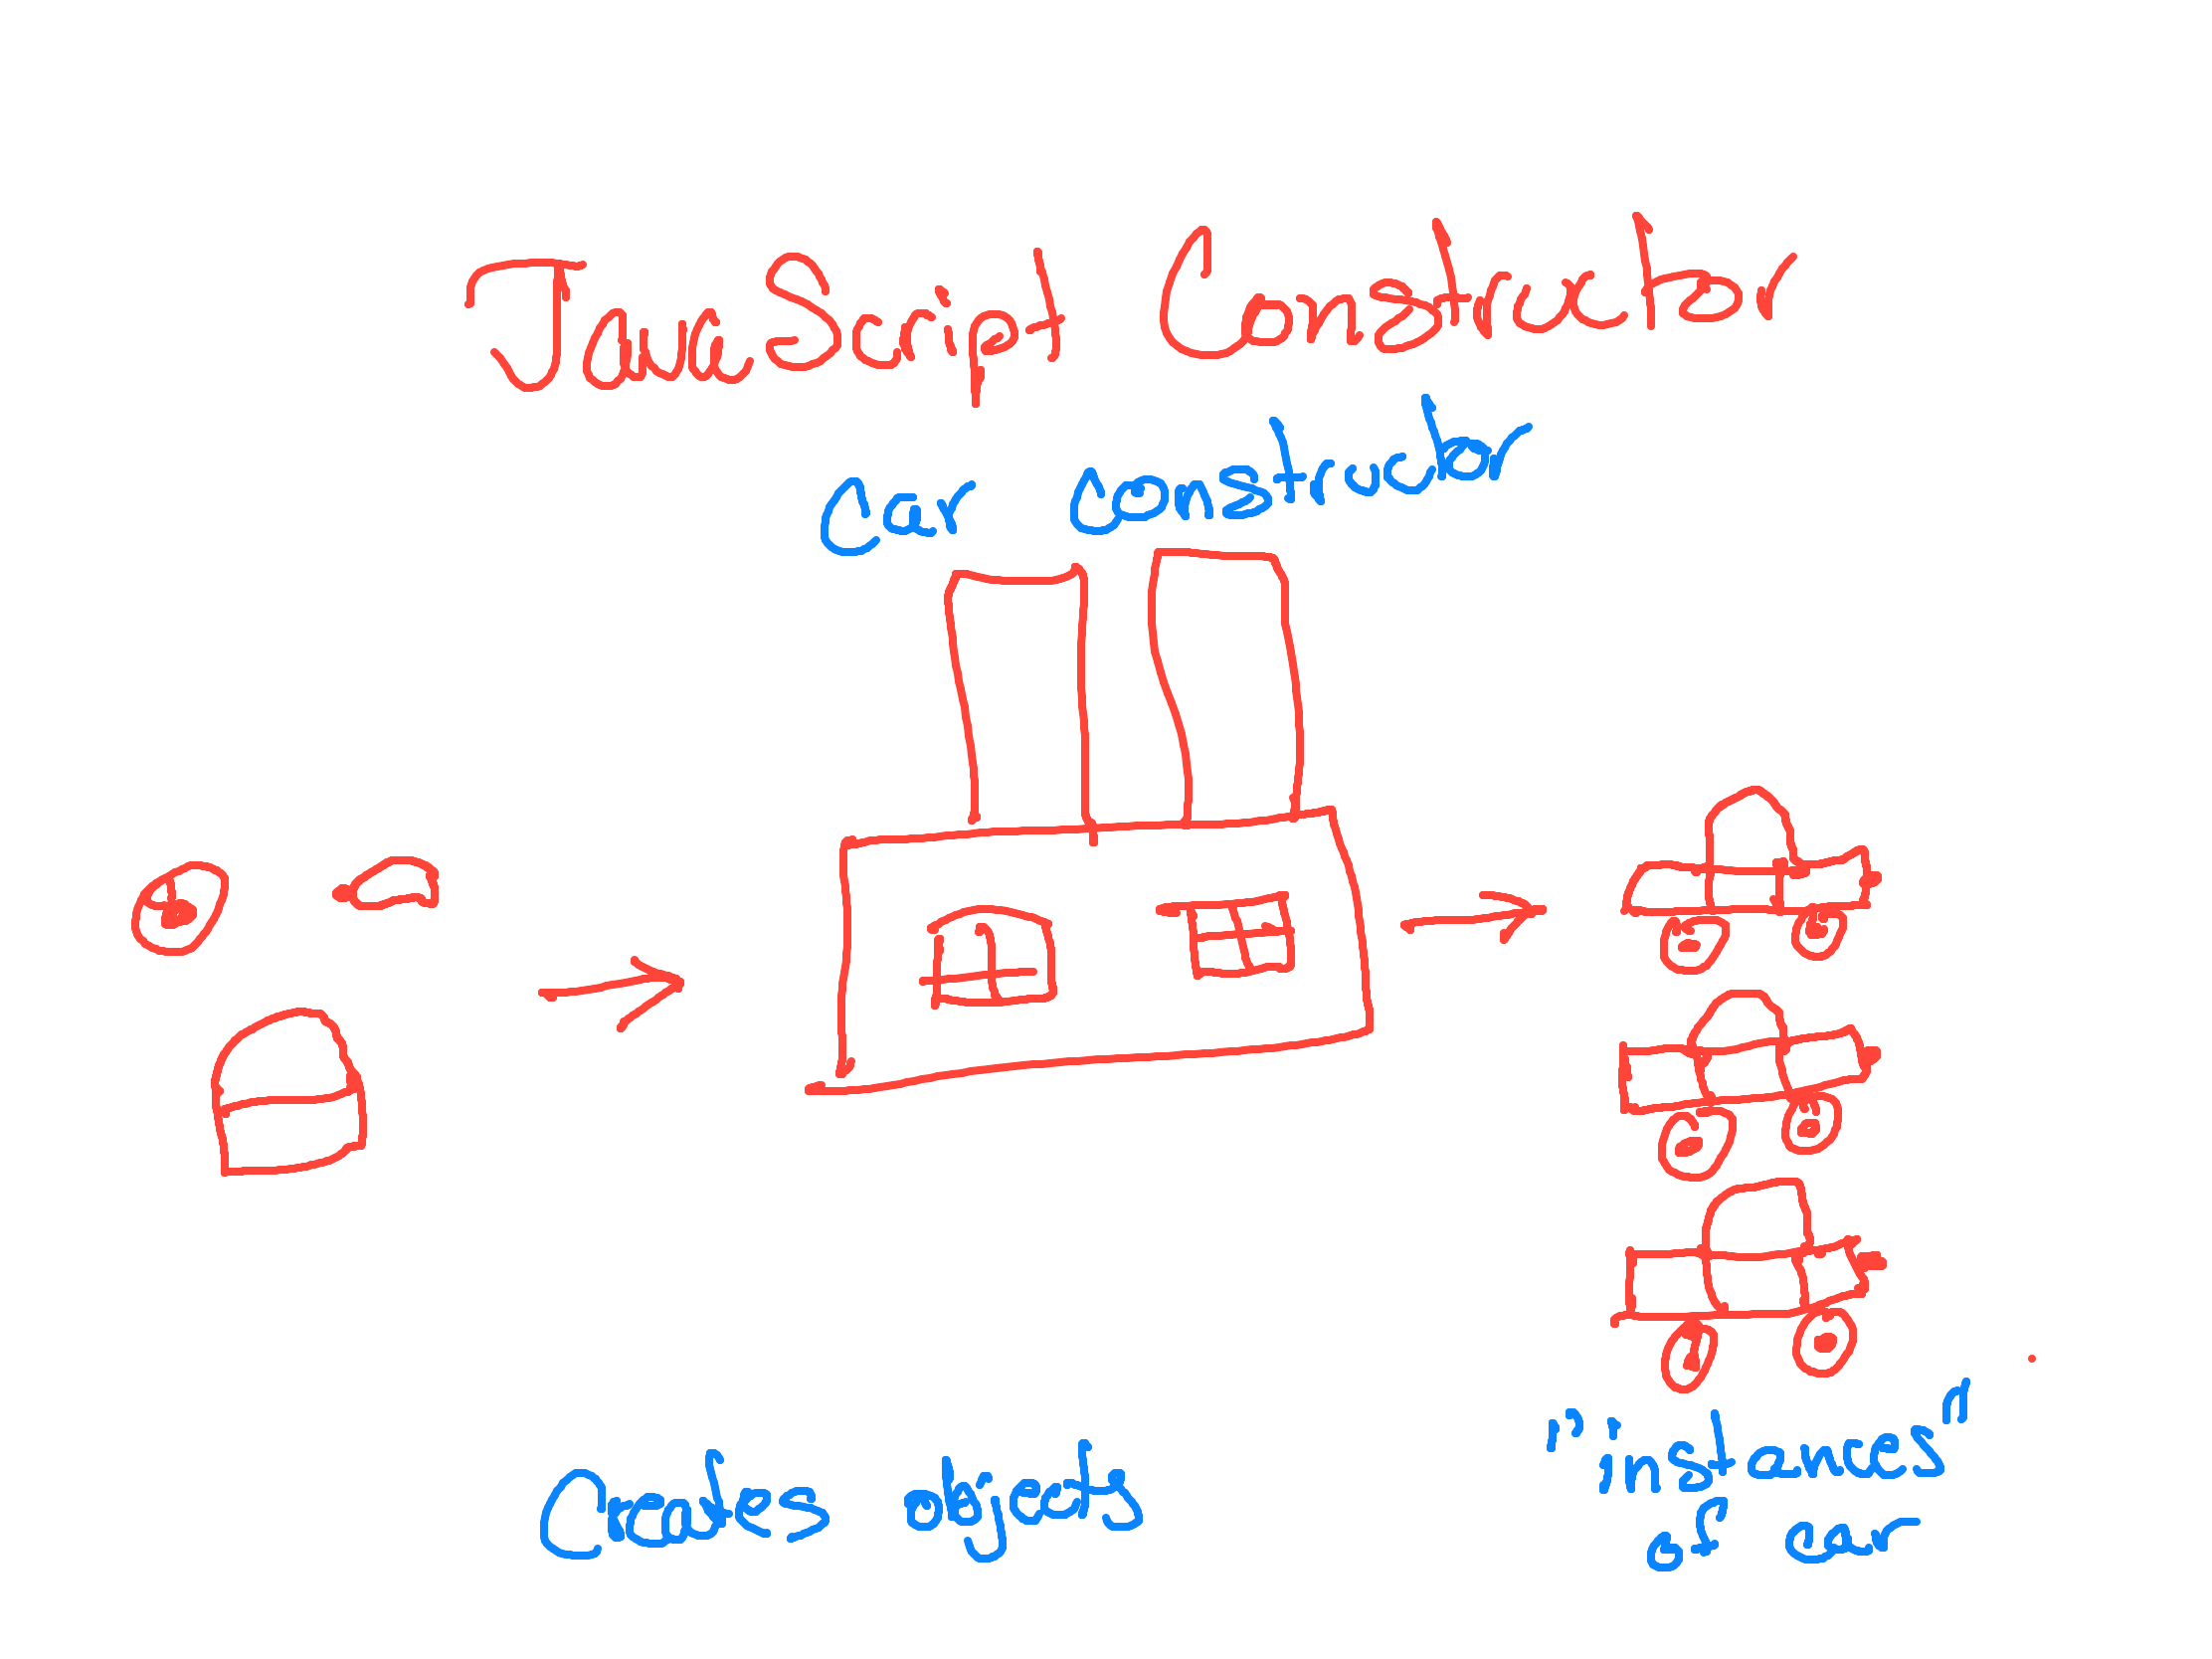 JavaScript Constructor
Car constructor
Creates objects
"instances"
of car